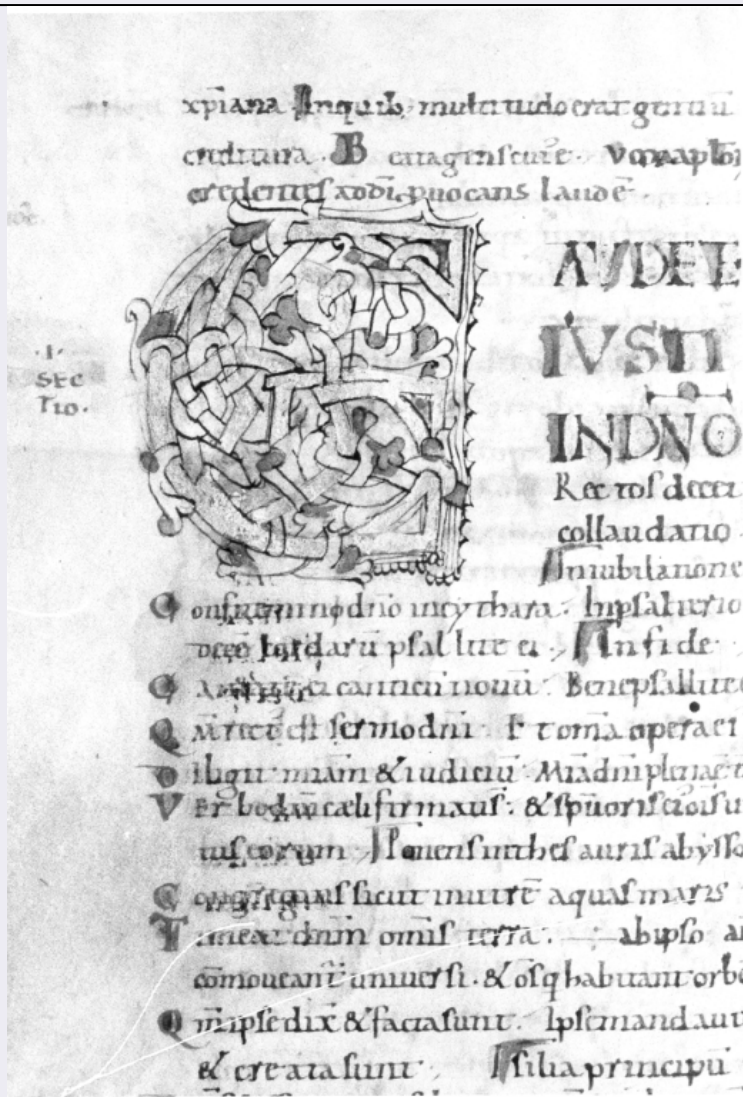 xp̄iana Inquib; multitudo erat gentiū
creditura. Beatagenscuī᷒e. Vox aplōꝝ
credentes xo dī puocans laudē.
GAUDETE
·I·
IVSTI
SEC
TIO·
IN DN̄O
Rectos decet
collaudatio
In iubilatione
Confitemini dn̄o in cythara. Inpsalterio
decē cordarū psallite ei. In fide
Cantate ei canticū novū. Benepsallite
Qm̄ rectū ÷ sermo dn̄i Et om̄a opera ei
Diligit mīam & iudiciū. Mīa dn̄i plena ÷ t
Verbo dn̄i cæli firmati s̄. & spū oris ei oīs u
tus eorum. Ponens in thesauris abysso
Congregans sicut in utrē aquas maris
Timeat dnm̄ omīs terra. ab ipso au
cōmoveant̄ universi. & om̄s q habitant orbē
Qm̄ ipse dix̄ & facta sunt. Ipse mandavit
& creata sunt. filia principū